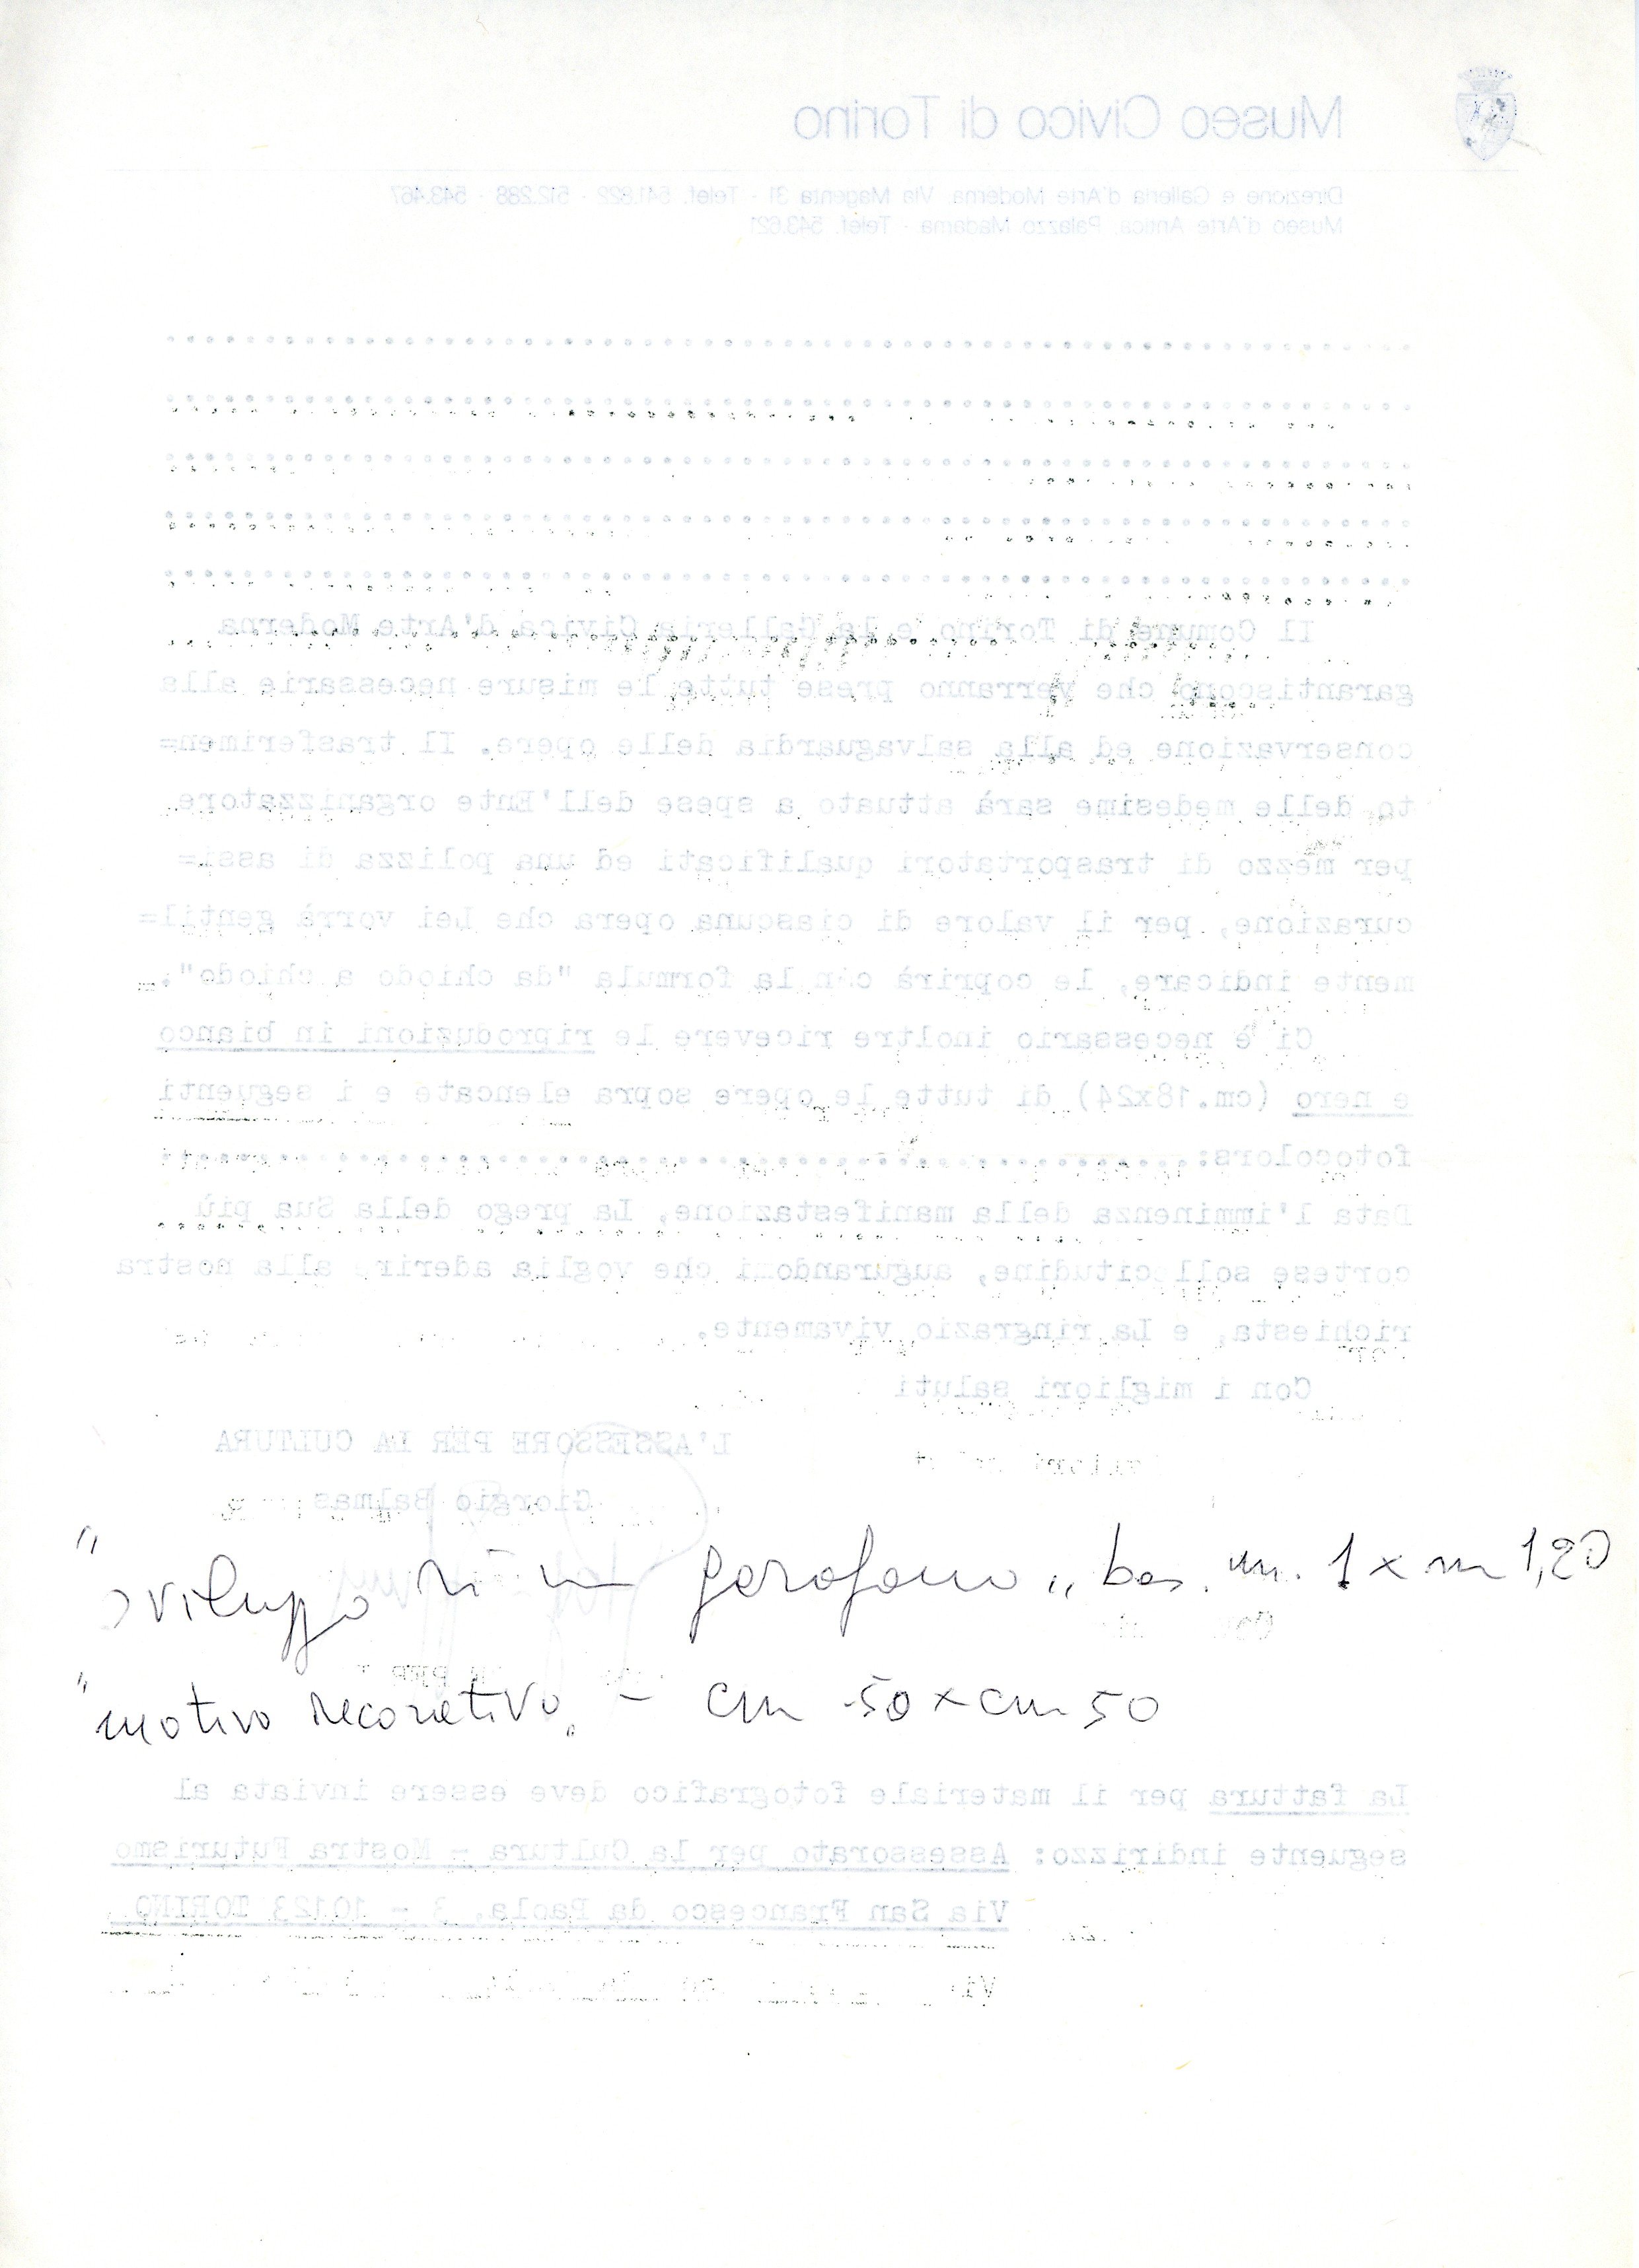 Museo Civico di Torino
Direzione e Galleria d'Arte Moderna, Via Magenta 31 - Telef. 541.822 - 512.288 - 543.467
Museo d'Arte Antica, Palazzo Madama - Telef. 543.621
Il Comune di Torino e la Galleria Civica d'Arte Moderna
garantiscono che verranno prese tutte le misure necessarie alla
conservazione ed alla salvaguardia delle opere. Il trasferimen=
to delle medesime sarà attuato a spese dell'Ente organizzatore
per mezzo di trasportatori qualificati ed una polizza di assi=
curazione, per il valore di ciascuna opera che Lei vorrà gentil=
mente indicare, le coprirà con la formula "da chiodo a chiodo".
Ci è necessario inoltre ricevere le riproduzioni in bianco
e nero (cm.18x24) di tutte le opere sopra elencate e i seguenti
fotocolors:
Data l'imminenza della manifestazione, La prego della Sua più
cortese sollecitudine, augurandomi che voglia aderire alla nostra
richiesta, e La ringrazio vivamente.
Con i migliori saluti
L'ASSESSORE PER LA CULTURA
Giorgio Balmas
"sviluppo di un garofano" bas. m. 1 x m 1,20
"motivo decorativo" - cm 50 x cm 50
La fattura per il materiale fotografico deve essere inviata al
seguente indirizzo: Assessorato per la Cultura - Mostra Futurismo
Via San Francesco da Paola, 3 - 10123 TORINO